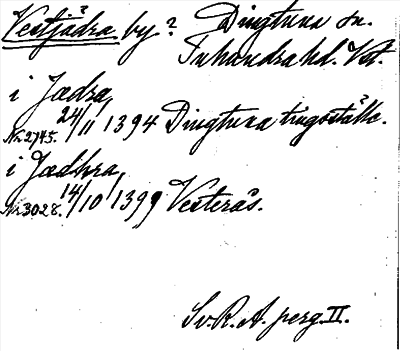 Vestjädra by? Dingtuna sn.
?
Tuhundra hd. Vstm.
i Jædra
Nr. 2745. 24/11 1394 Dingtuna tingsställe.
i Jædhra,
Nr. 3028. 14/10 1399 Vesterås.
Sv. R. A. perg. II.